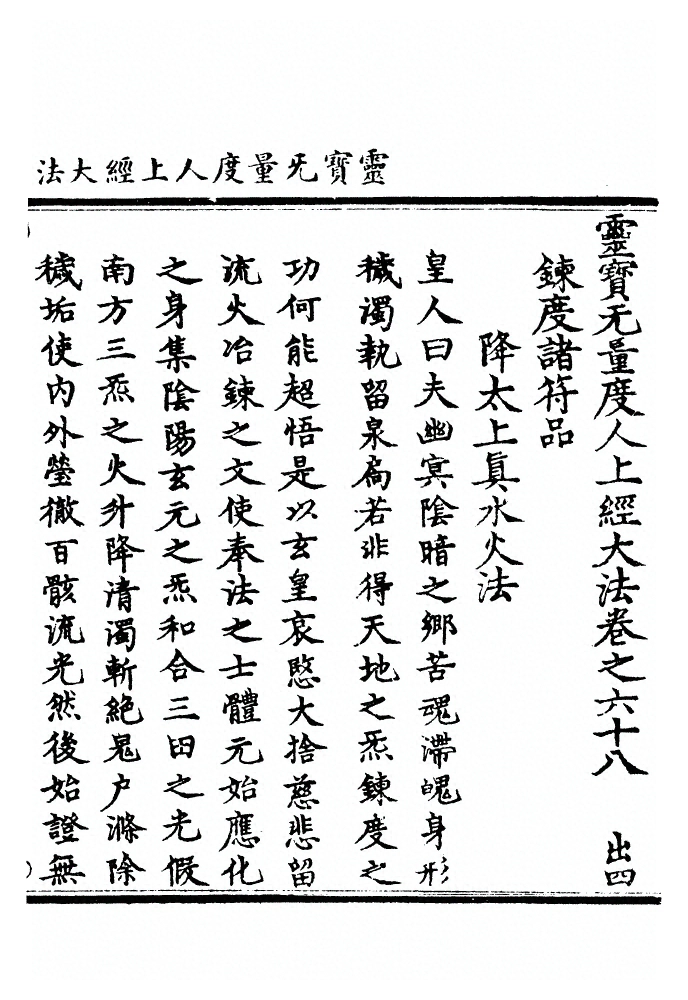 靈寶无量度人上經大法
靈寶无量度人上經大法卷之六十八 出四
鍊度諸符品
降太上眞水火法
皇人曰夫幽冥陰暗之鄉苦魂滯魄身形
穢濁執留泉扃若非得天地之炁鍊度之
功何能超悟是以玄皇哀愍大捨慈悲留
流火冶鍊之文使奉法之士體元始應化
之身集陰陽玄元之炁和合三田之光假
南方三炁之火升降清濁斬絕鬼户滌除
穢垢使內外瑩徹百骸流光然後始證無